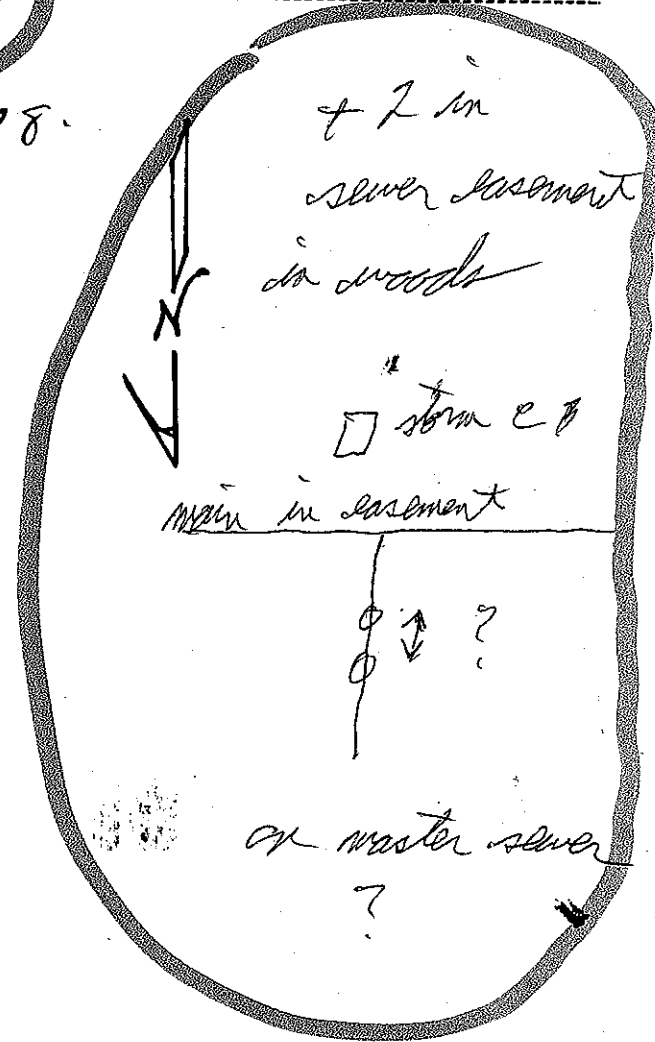 8.
+ 2 in
sewer easement
in woods
N
storm c B
main in easement
?
on master sewer
?